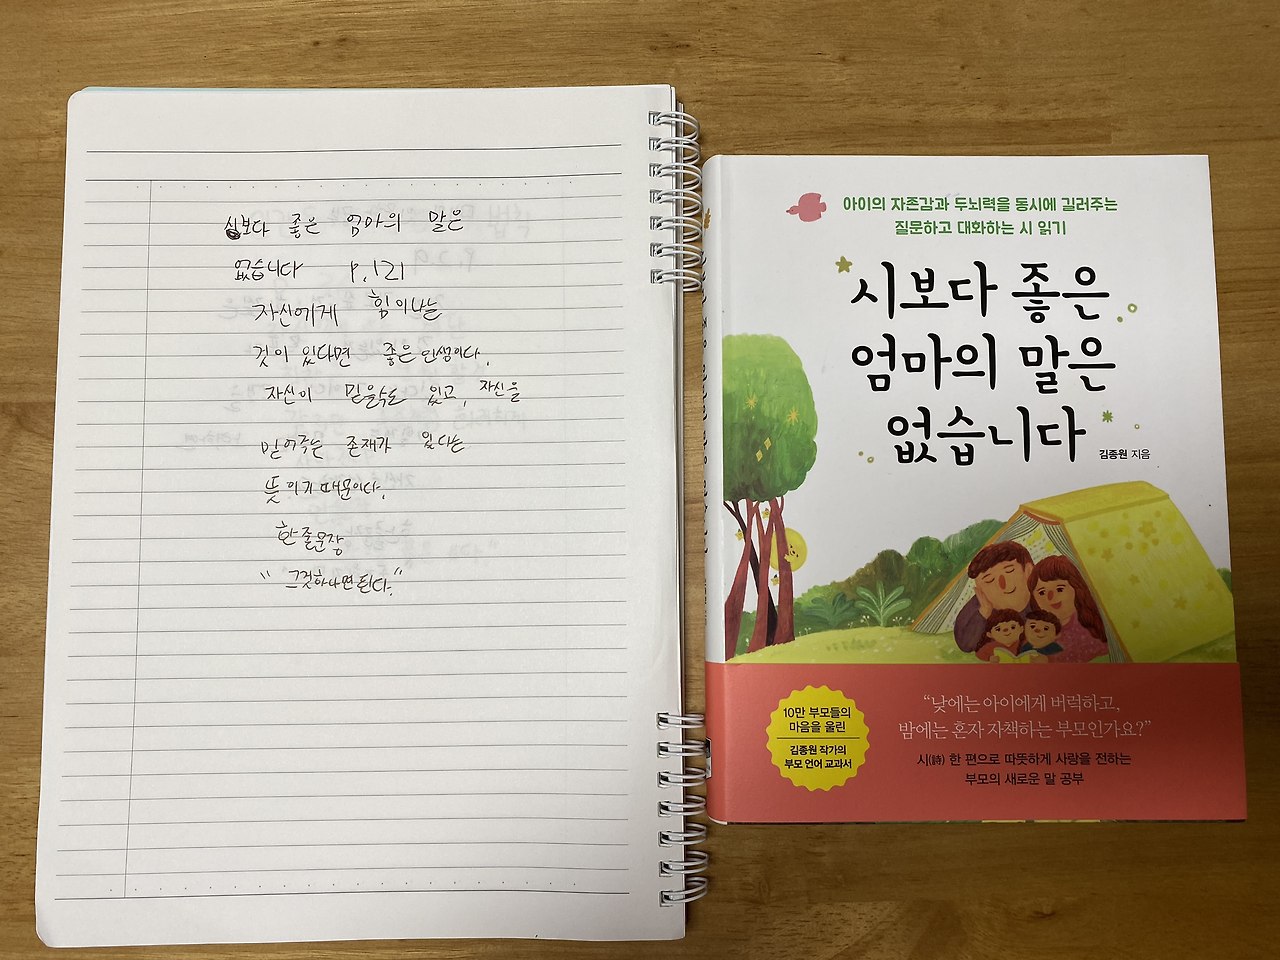 시보다 좋은 엄마의 말은
없습니다 p.121
자신에게 힘이나는
것이 있다면 좋은 인생이다.
자신이 믿을수도 있고, 자신을
믿어주는 존재가 있다는
뜻이기 때문이다.
한줄문장
"그것하나면 된다."
아이의 자존감과 두뇌력을 동시에 길러주는
질문하고 대화하는 시 읽기
시보다 좋은
엄마의 말은
없습니다
김종원 지음
10만 부모들의
마음을 울린
김종원 작가의
부모 언어 교과서
“낮에는 아이에게 버럭하고,
밤에는 혼자 자책하는 부모인가요?”
시(詩) 한 편으로 따뜻하게 사랑을 전하는
부모의 새로운 말 공부